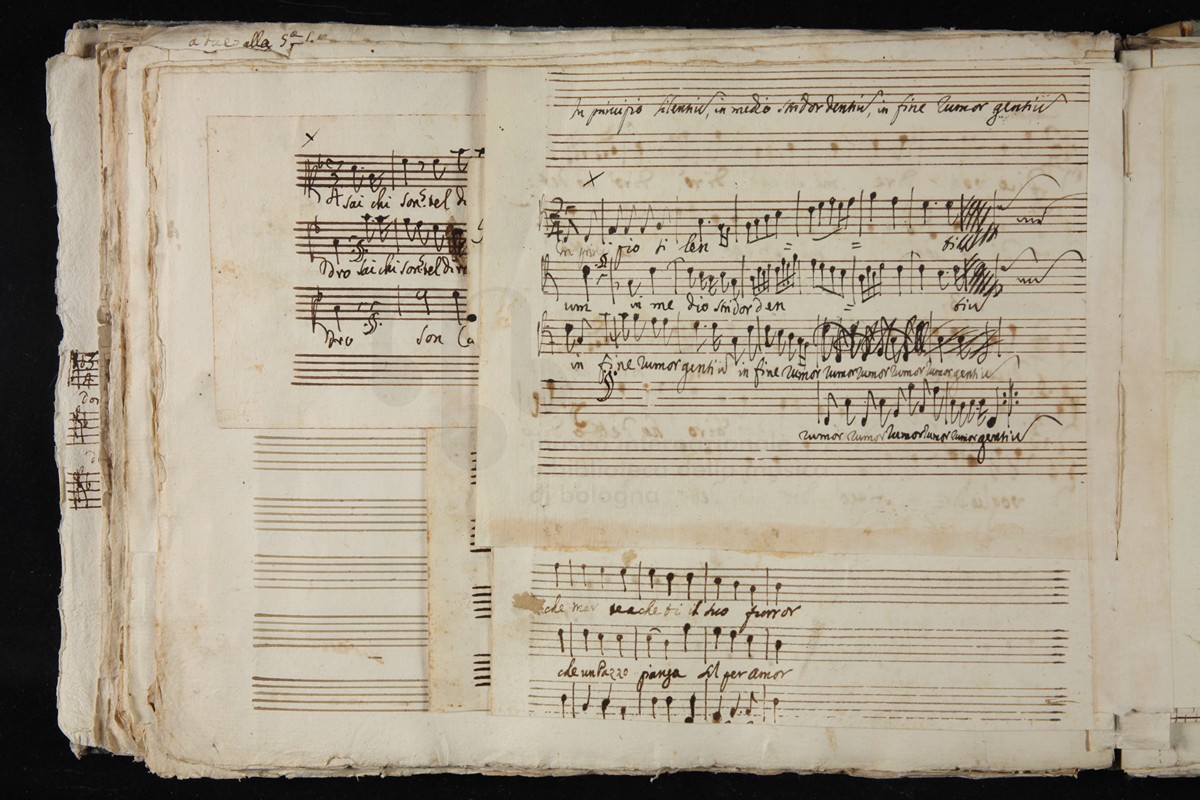 a tue alla 5ª
In principio silentiũ, in medio stridor dentiũ, in fine rumor gentiũ
A sai chi son? tel di
Dro sai chi son? tel di
Dro son Ca
pio si len tiũ
um in me dio stridor den tiũ
in fine rumor gentiũ in fine rumor rumor rumor rumor rumor gentiũ
rumor rumor rumor rumor rumor gentiũ
che mar che ti il suo furror
che un Pazzo pianga sil per amor